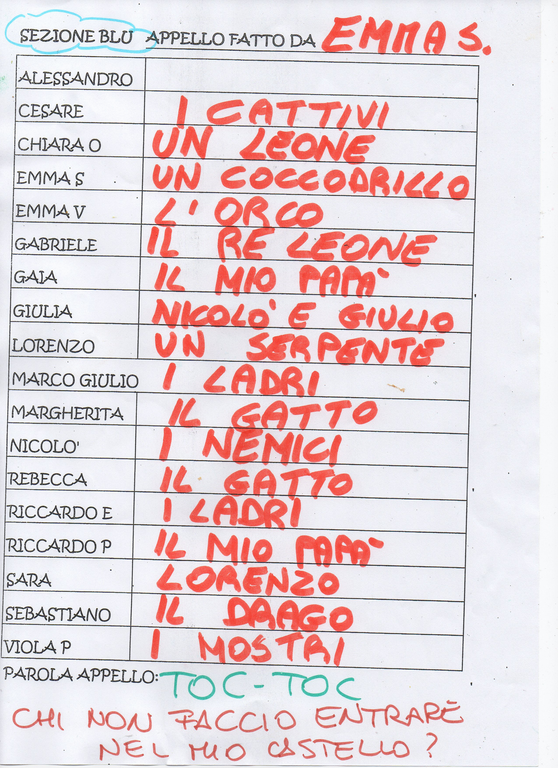 SEZIONE BLU APPELLO FATTO DA EMMA S.
ALESSANDRO
CESARE I CATTIVI
CHIARA O UN LEONE
EMMA S UN COCCODRILLO
EMMA V L'ORCO
GABRIELE IL RE LEONE
GAIA IL MIO PAPA'
GIULIA NICOLO' E GIULIO
LORENZO UN SERPENTE
MARCO GIULIO I LADRI
MARGHERITA IL GATTO
NICOLO' I NEMICI
REBECCA IL GATTO
RICCARDO E I LADRI
RICCARDO P IL MIO PAPA'
SARA LORENZO
SEBASTIANO IL DRAGO
VIOLA P I MOSTRI
PAROLA APPELLO: TOC-TOC
CHI NON FACCIO ENTRARE
NEL MIO CASTELLO?